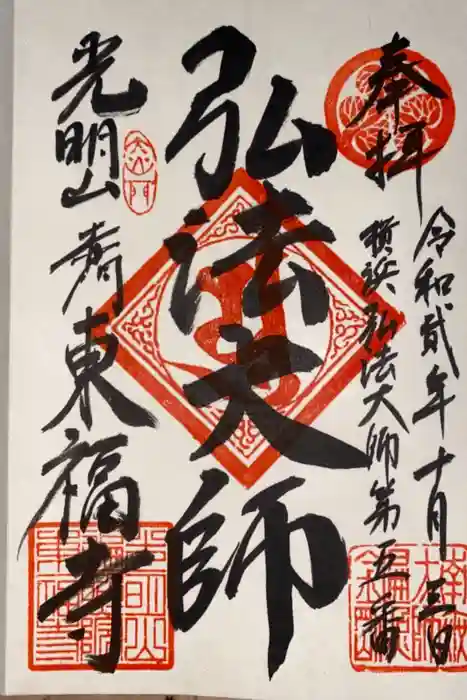 奉拝
令和貮年十月三日
横浜弘法大師第五番
弘法大師
光明山
東福寺